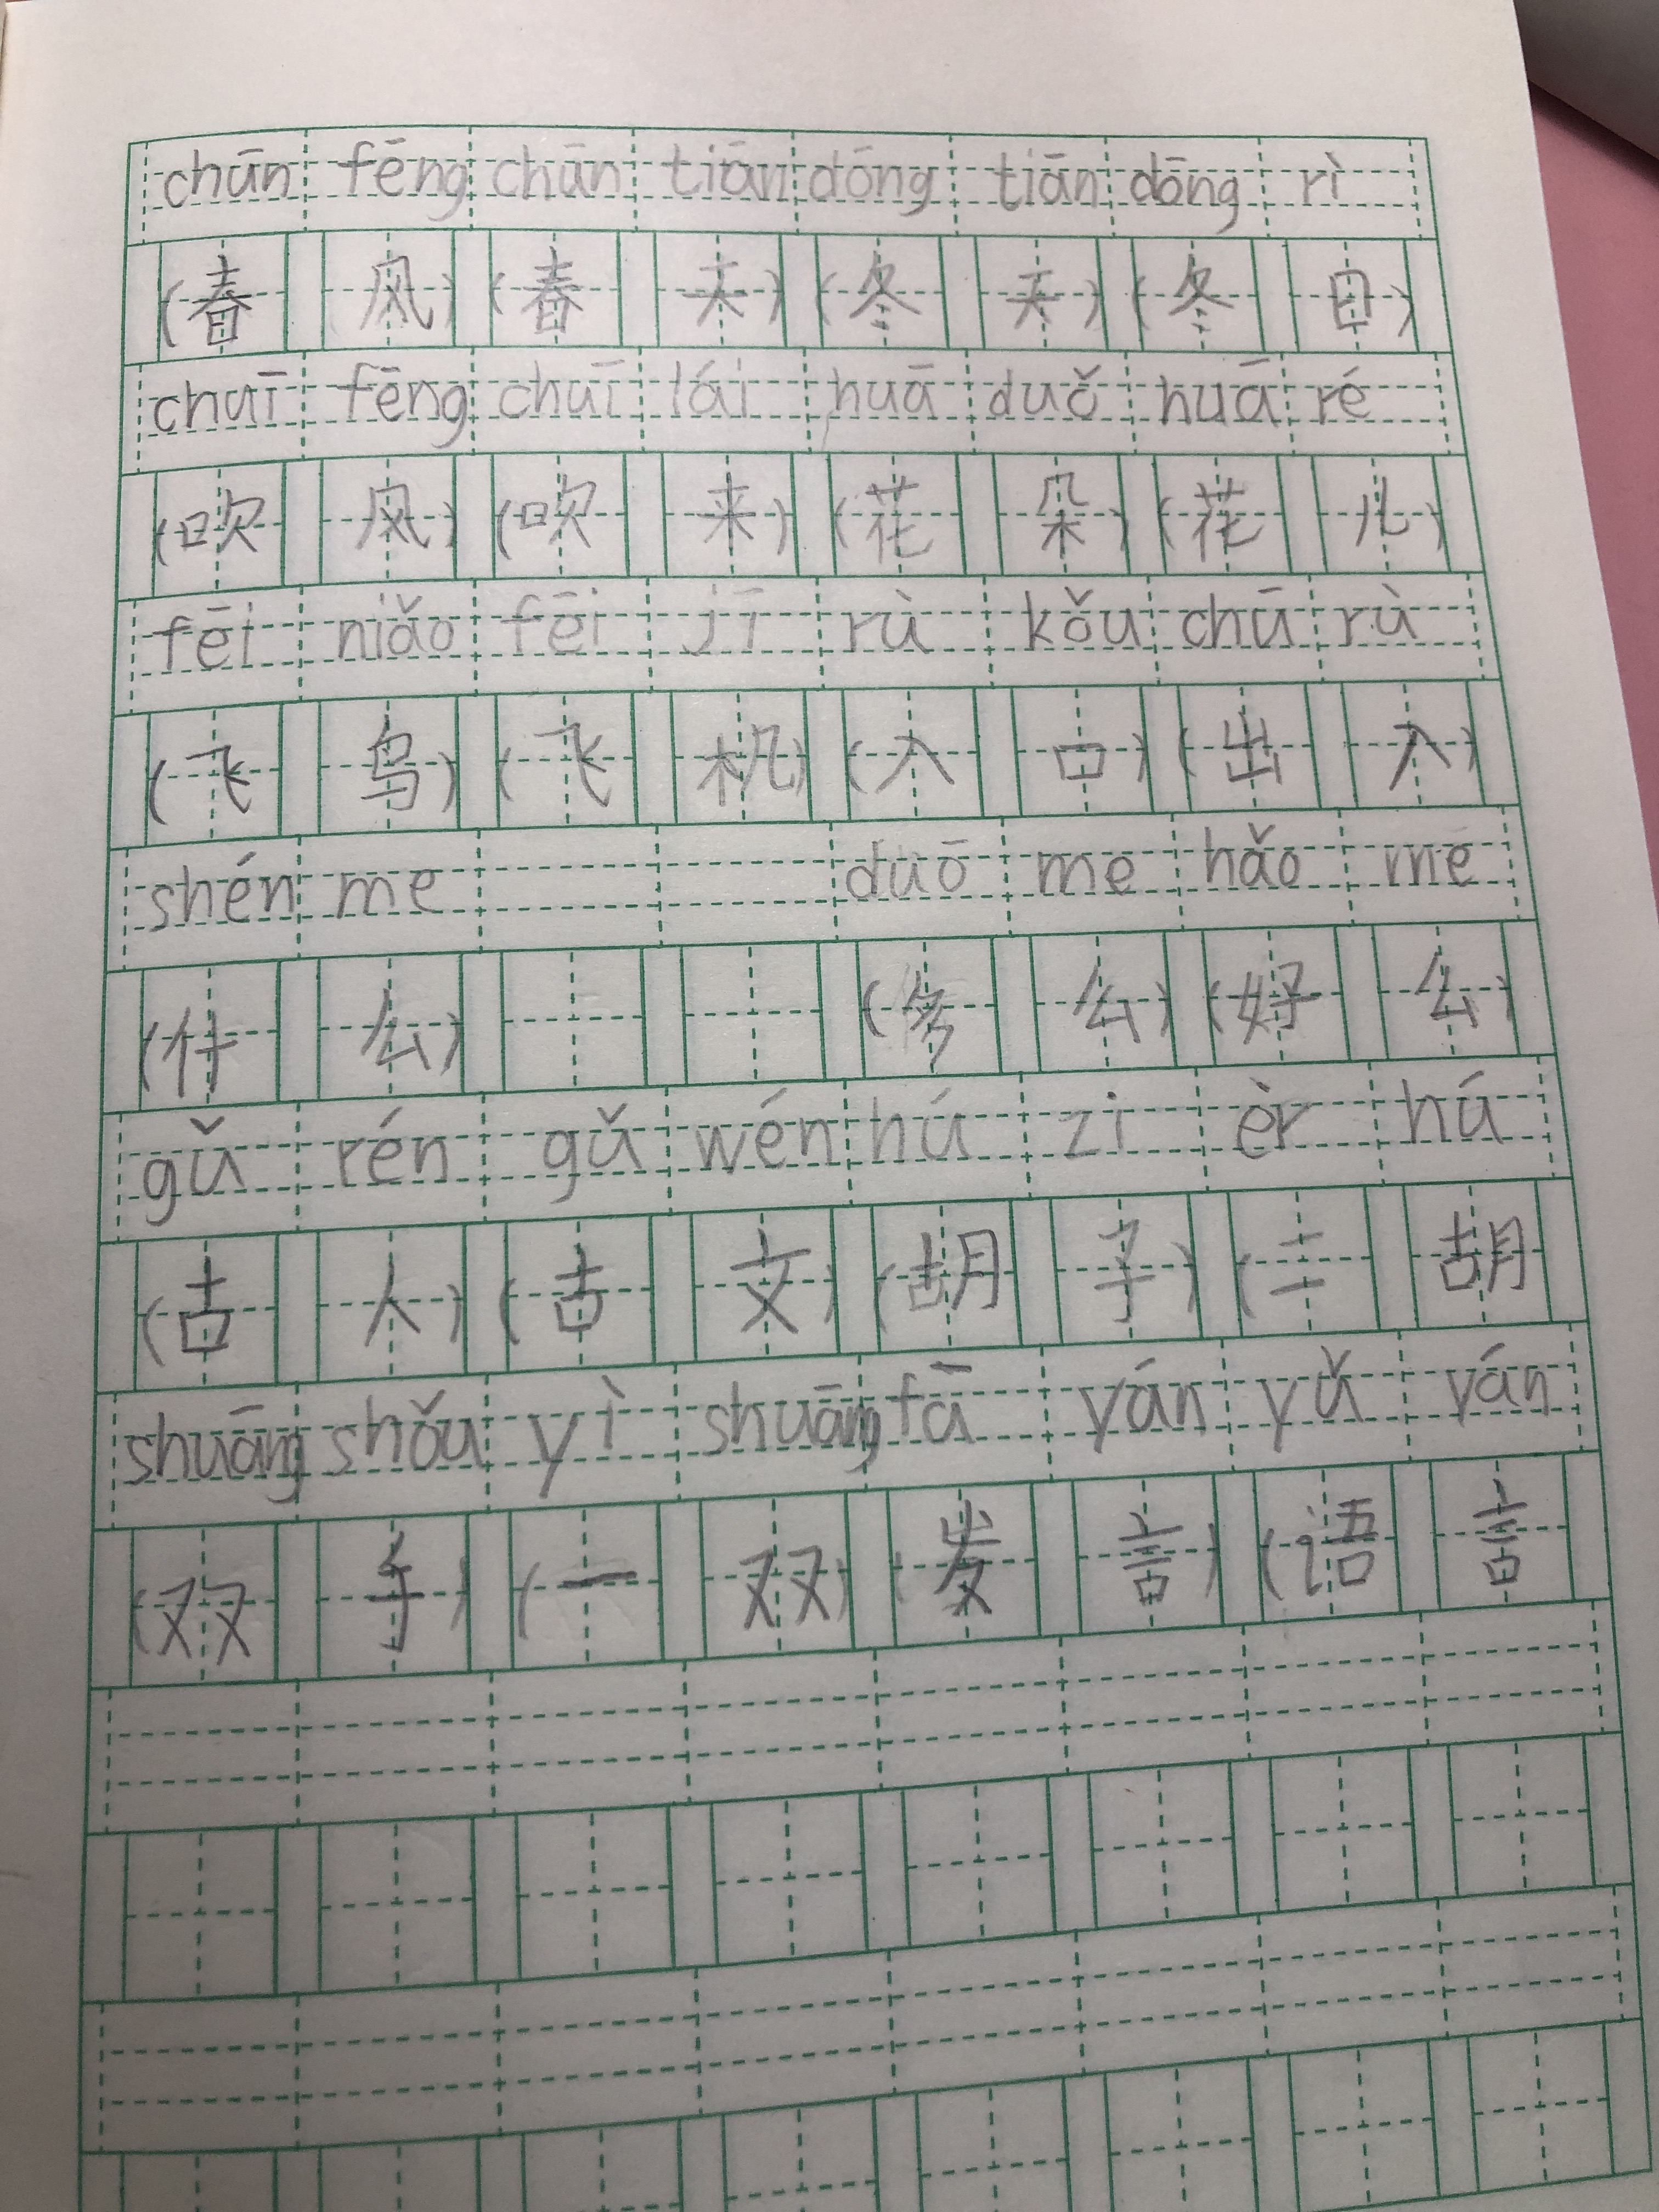 chūn fēng chūn tiān dōng tiān dōng rì
(春 风) (春 天) (冬 天) (冬 日)
chuī fēng chuī lái huā duǒ huā ré
(吹 风) (吹 来) (花 朵) (花 儿)
fēi niǎo fēi jī rù kǒu chū rù
(飞 鸟) (飞 机) (入 口) (出 入)
shén me duō me hǎo me
(什 么) (多 么) (好 么)
gǔ rén gǔ wén hú zi èr hú
(古 人) (古 文) (胡 子) (二 胡
shuāng shǒu yì shuāng fā yán yǔ yán
(双 手) (一 双) (发 言) (语 言